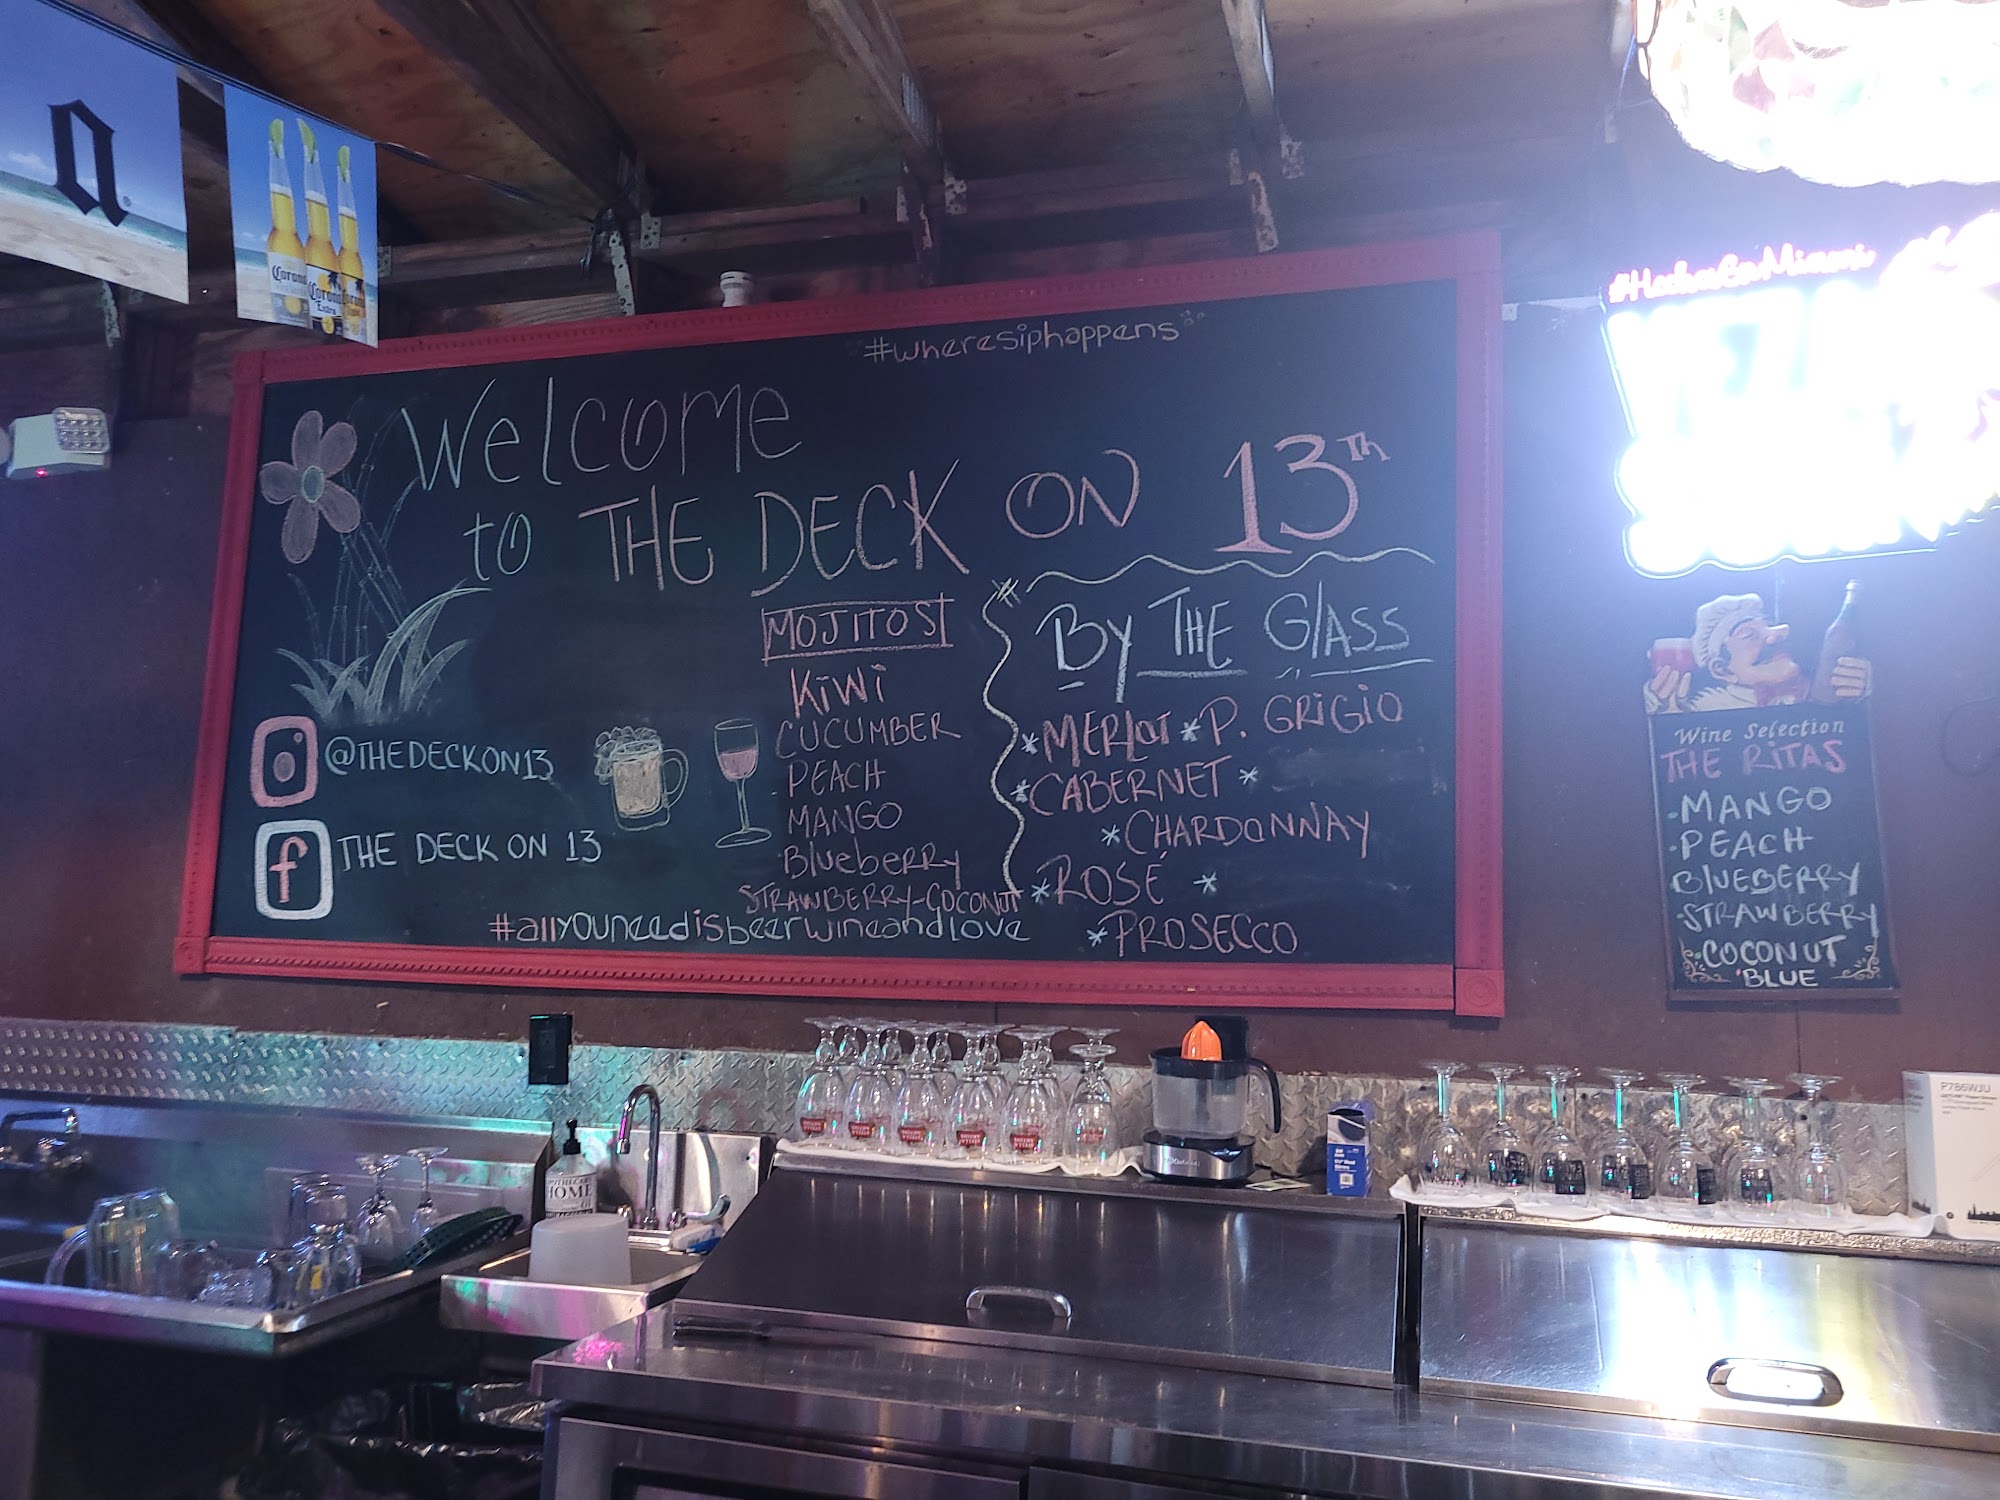 a
Corona
Corona
Extra
#wheresiphappens
Welcome
to THE DECK ON 13TH
MOJITOS!
KiWi
CUCUMBER
PEACH
MANGO
BlueberRy
STRAWBERRY-COCONUT
BY THE GlASS
*MERLOT *P. GRiGiO
*CABERNET *
*CHARDONNAY
*ROSÉ *
*PROSECCO
@THEDECKON13
f THE DECK ON 13
#allyouneedisbeerwineandlove
Wine Selection
THE RiTAS
·MANGO
·PEACH
BlUEBERRY
·STRAWBERRY
·COCONUT
BLUE
HOME
P786WJU